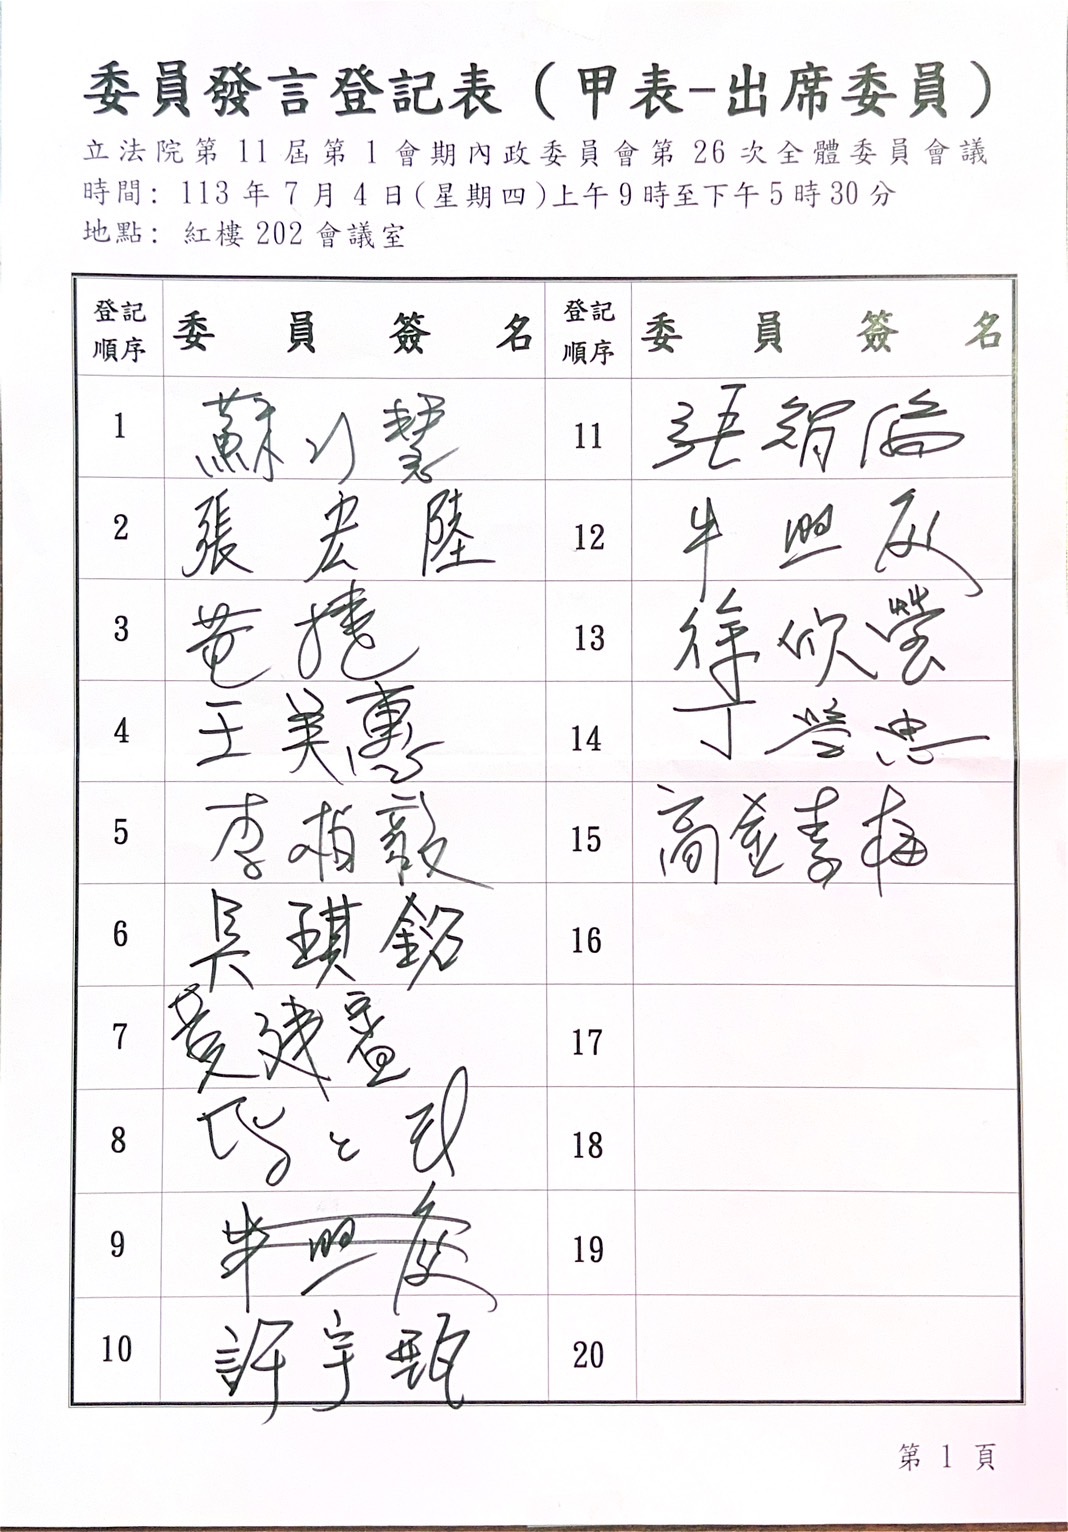 委員發言登記表（甲表-出席委員）
立法院第 11 屆第 1 會期內政委員會第 26 次全體委員會議
時間：113 年 7 月 4 日(星期四)上午 9 時至下午 5 時 30 分
地點：紅樓 202 會議室
登記順序 委員簽名 登記順序 委員簽名
1 蘇巧慧 11 張智倫
2 張宏陸 12 牛煦庭
3 黃捷 13 徐欣瑩
4 王美惠 14 丁學忠
5 李柏毅 15 高金素梅
6 吳琪銘 16
7 黃建賓 17
8 18
9 牛煦庭 19
10 許宇甄 20
第 1 頁